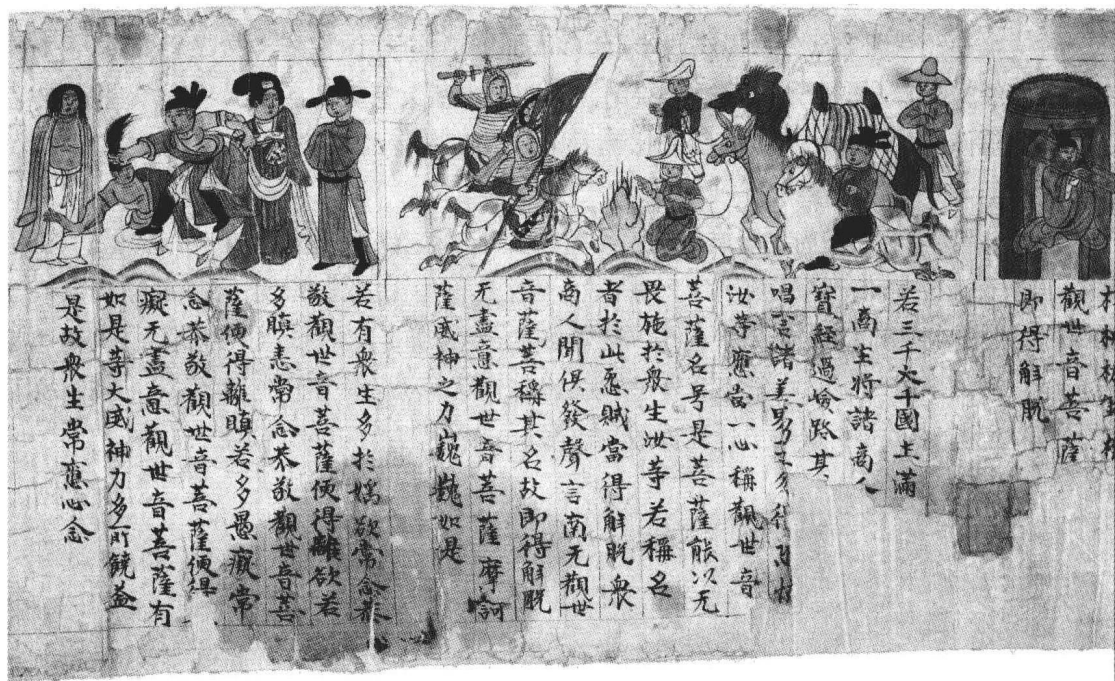 觀世音菩薩
即得解脫
若三千大千國土滿
一商主將諸商人
寶經過嶮路其
唱言諸善男子
汝等應當一心稱觀世音
菩薩名号是菩薩能以无
畏施於衆生汝等若稱名
者於此怨賊當得解脫衆
商人聞俱發聲言南无觀世
音薩菩稱其名故即得解脫
无盡意觀世音菩薩摩訶
薩威神之力巍巍如是
若有衆生多於婬欲常念恭
敬觀世音菩薩便得離欲若
多瞋恚常念恭敬觀世音菩
薩便得離瞋若多愚癡常
念恭敬觀世音菩薩便得
癡无盡意觀世音菩薩有
如是等大威神力多所饒益
是故衆生常應心念